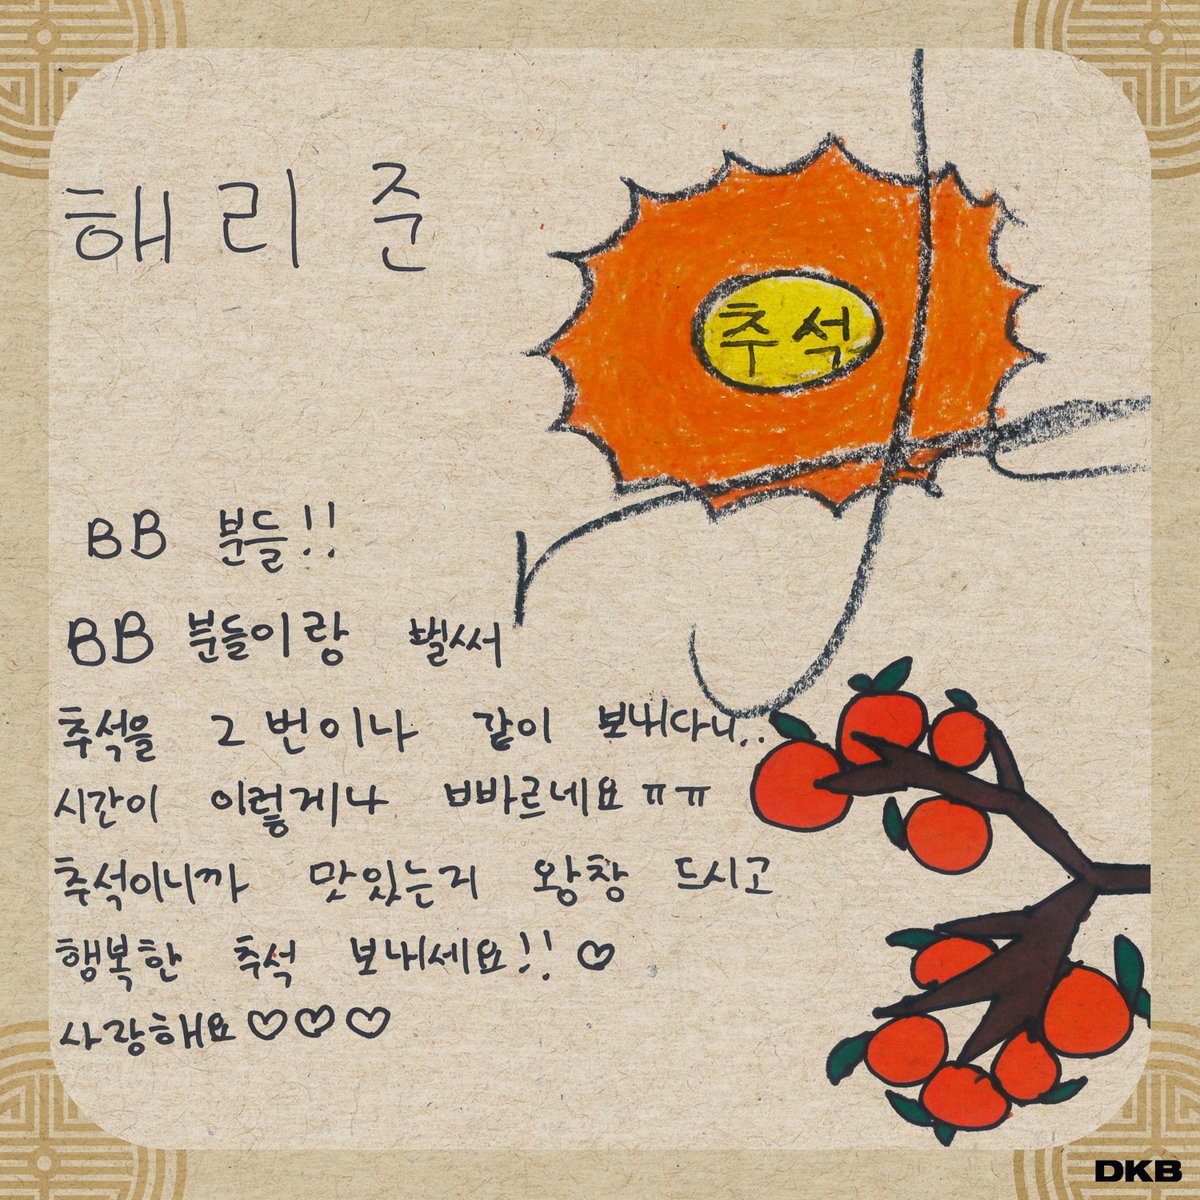 해리준
추석
BB 분들!!
BB 분들이랑 벌써
추석을 2번이나 같이 보내다니..
시간이 이렇게나 빠르네요 ㅠㅠ
추석이니까 맛있는거 왕창 드시고
행복한 추석 보내세요!! ♡
사랑해요♡♡♡
DKB